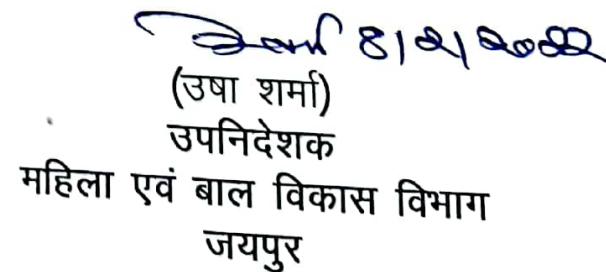 8|2|2022
(उषा शर्मा)
उपनिदेशक
महिला एवं बाल विकास विभाग
जयपुर